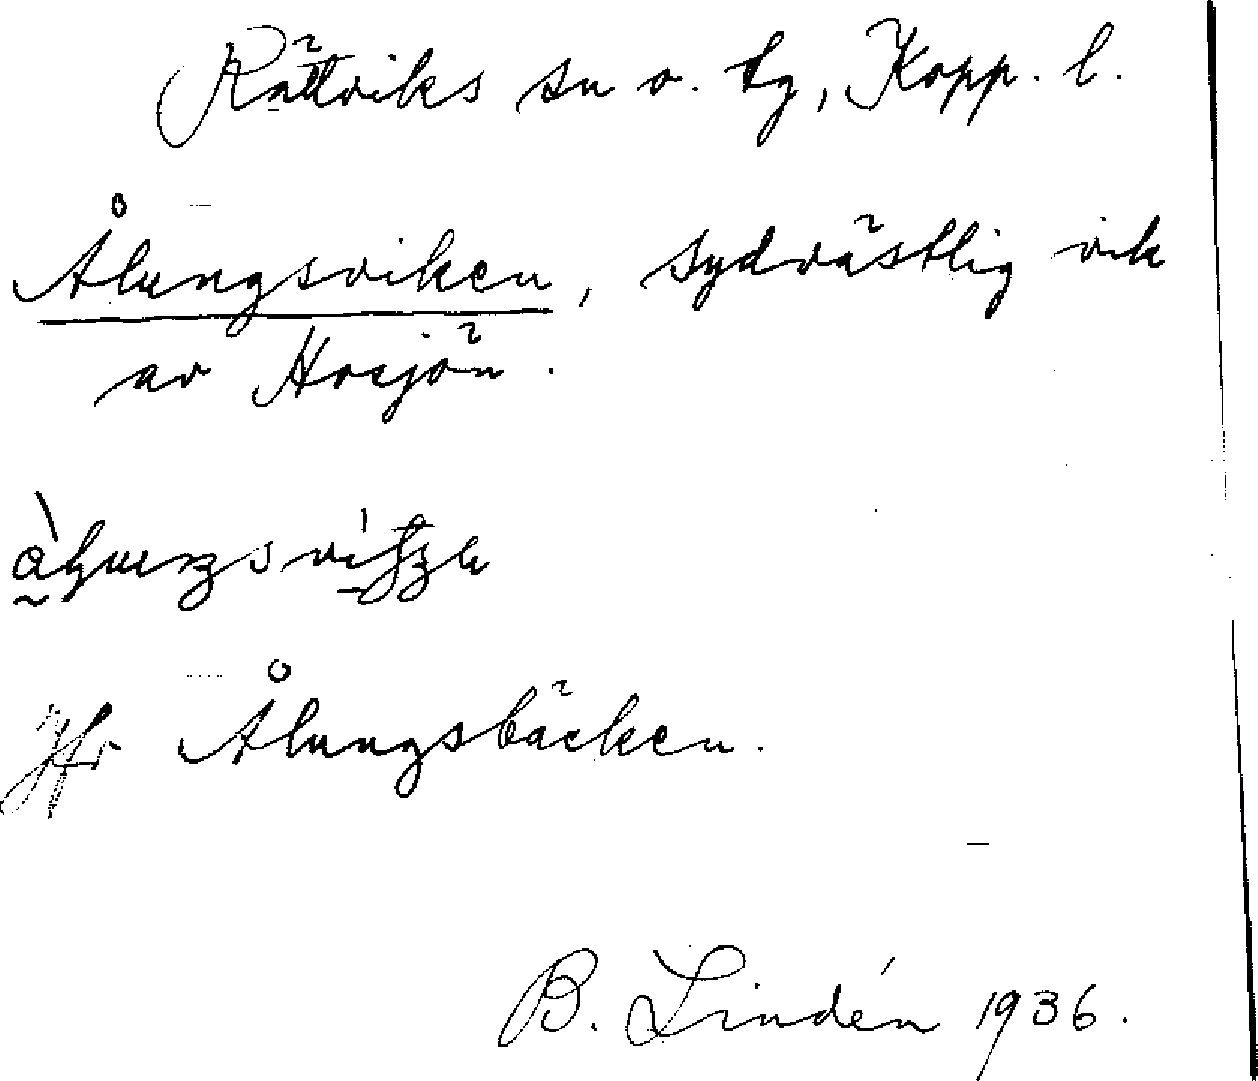 Rättviks sn o. tg, Kopp. l.
Ålungsviken, sydvästlig vik
av Hosjön.
Jfr Ålungsbäcken.
B. Lindén 1936.